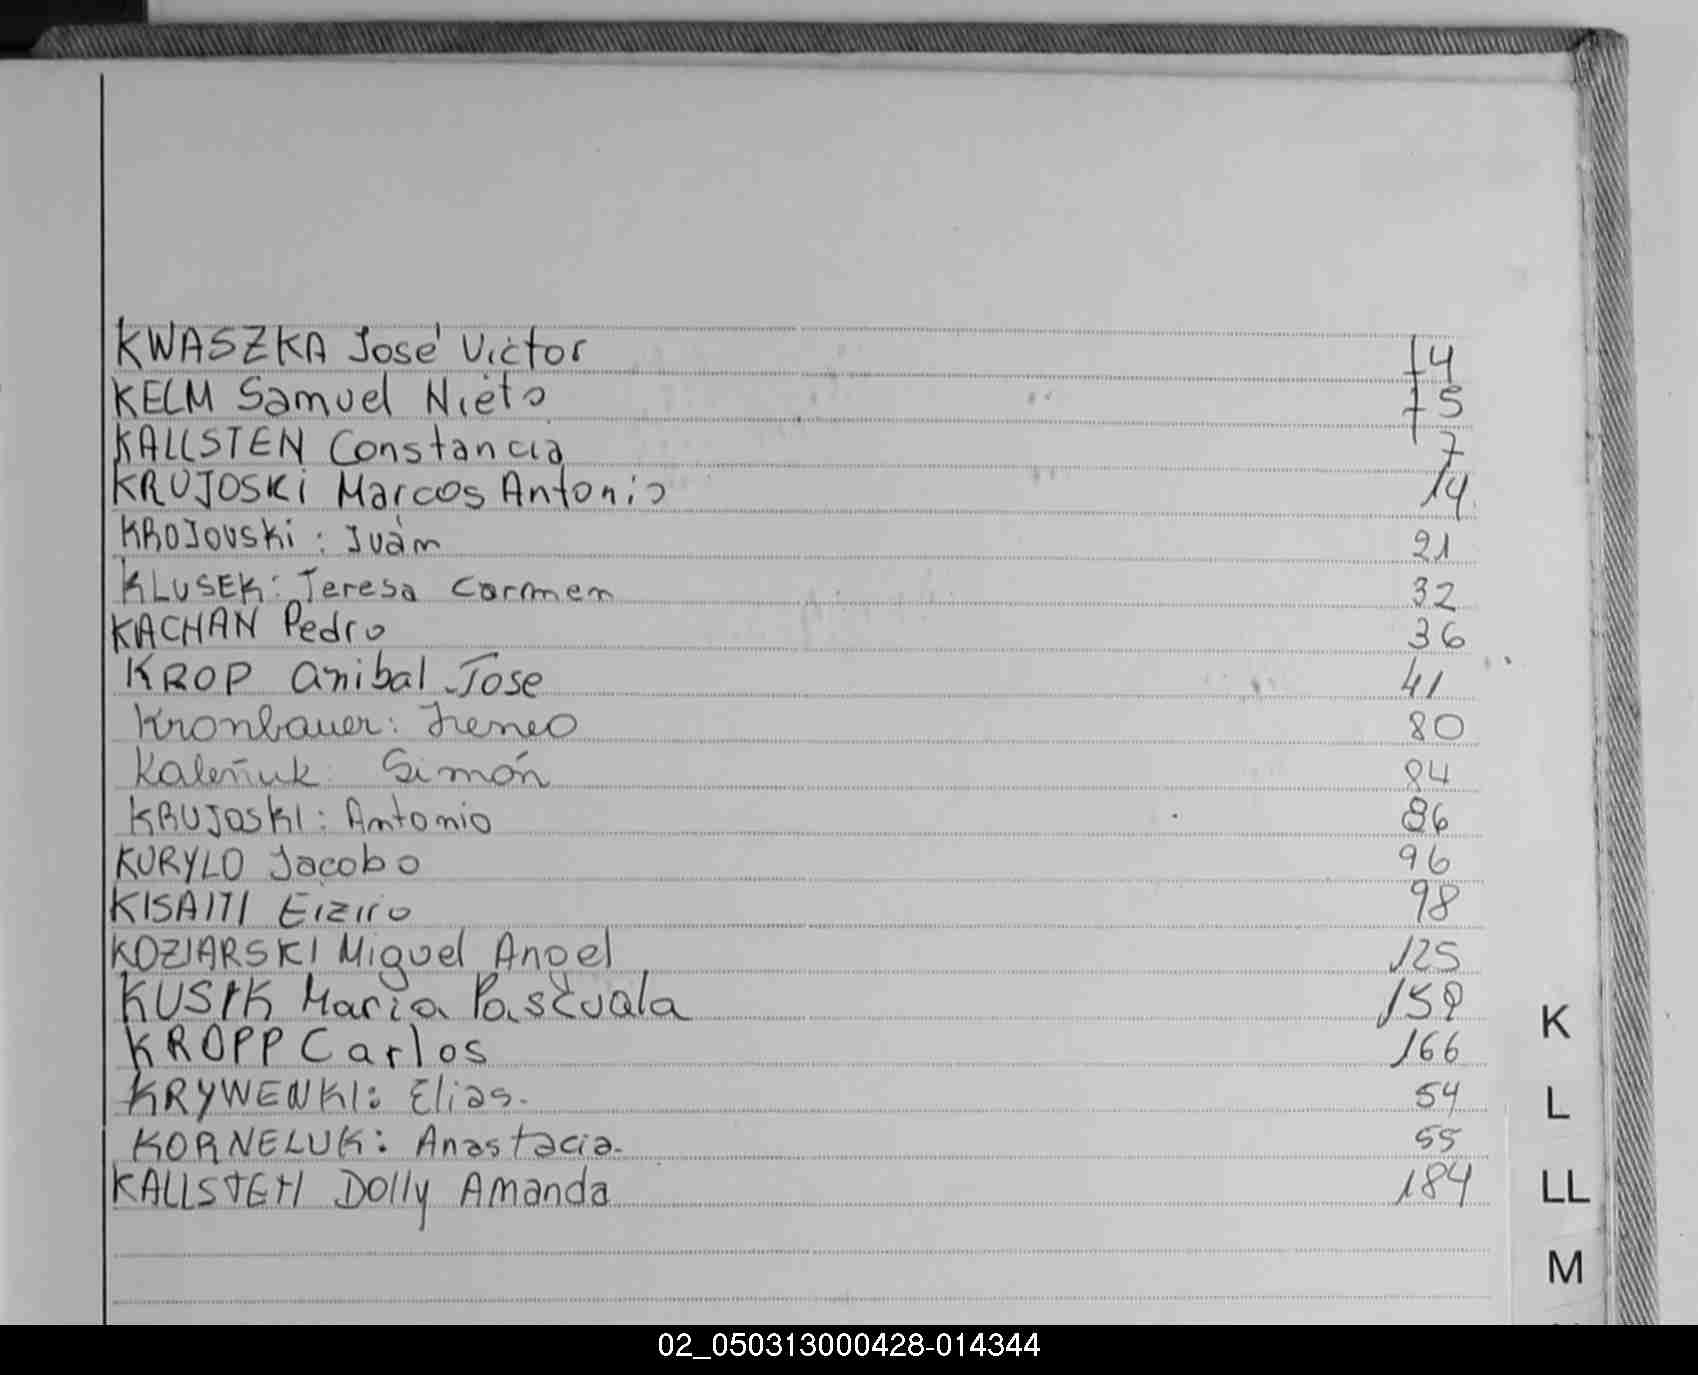 KWASZKA José Victor 4
KELM Samuel Nieto 5
KALLSTEN Constancia 7
KRUJOSKi Marcos Antonio 14
KROJOUSKi: Iván 21
KLUSEK: Teresa Carmen 32
KACHAN Pedro 36
KROP Anibal Jose 41
Kronbauer: Ireneo 80
Kaleñuk: Simón 84
KRUJOSKI: Antonio 86
KURYLO Jacobo 96
98
KOZIARSKI Miguel Angel 125
KUSIK Maria Pascuala 159
KROPP Carlos 166
K
KRYWENKI: Elias. 54
L
KORNELUK: Anastacia. 55
KALLSTEN Dolly Amanda 184
LL
M
02_050313000428-014344